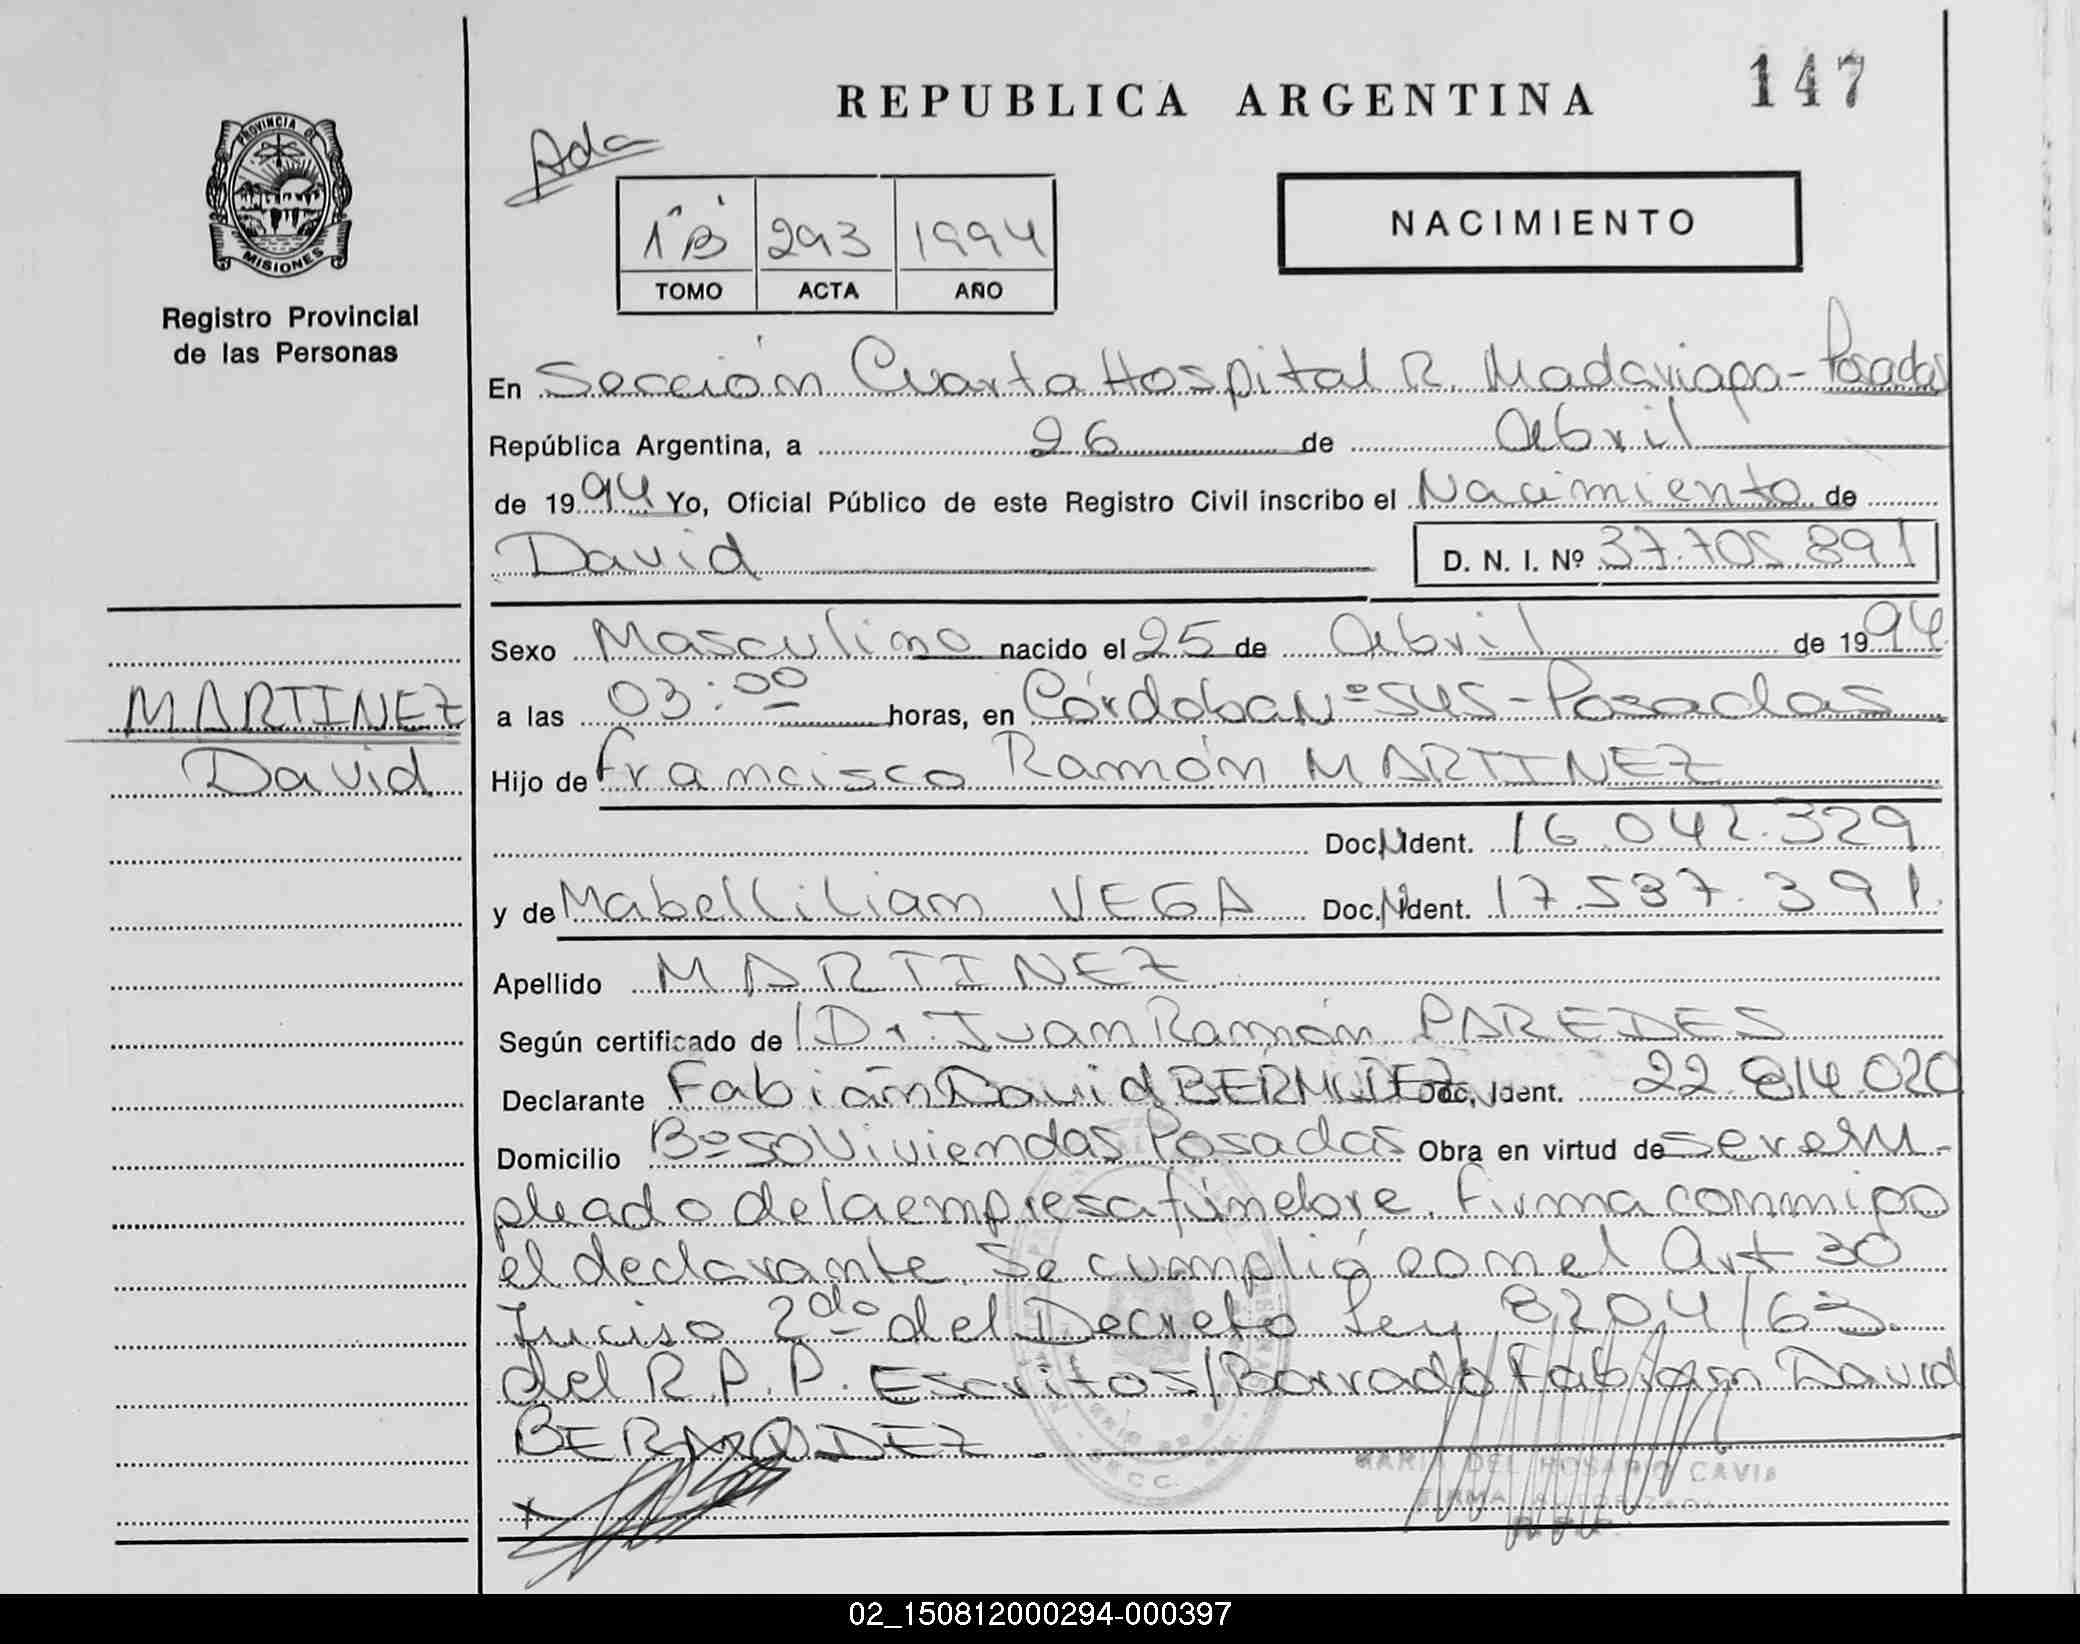 147
REPUBLICA ARGENTINA
Ada
PROVINCIA DE
MISIONES
Registro Provincial
de las Personas
NACIMIENTO
1º "B" 293 1994
TOMO ACTA AÑO
En Sección Cuarta Hospital R. Madariaga - Posadas
República Argentina, a 26 de abril
de 1994 Yo, Oficial Público de este Registro Civil inscribo el Nacimiento de
David D. N. I. Nº 37.705.891
Sexo Masculino nacido el 25 de abril de 1994
MARTINEZ
David
a las 03:00 horas, en Córdoba Nº 545 - Posadas
Hijo de Francisco Ramón MARTINEZ
Doc. N. Ident. 16.042.329
y de Mabel Liliam VEGA Doc. N. Ident. 17.537.391.
Apellido MARTINEZ
Según certificado de Dr. Juan Ramón PAREDES
Declarante Fabián David BERMUDEZ Doc. Ident. 22.814.020
Domicilio Bº 50 Viviendas Posadas Obra en virtud de ser em-
pleado de la empresa fúnebre. Firma conmigo
el declarante. Se cumplió con el Art 30
Inciso 2do del Decreto Ley 8204/63
del R.P.P. Escritos/Borrado Fabian David
BERMUDEZ.
MARIA DEL ROSARIO CAVIA
FIRMA AUTORIZADA
02_150812000294-000397